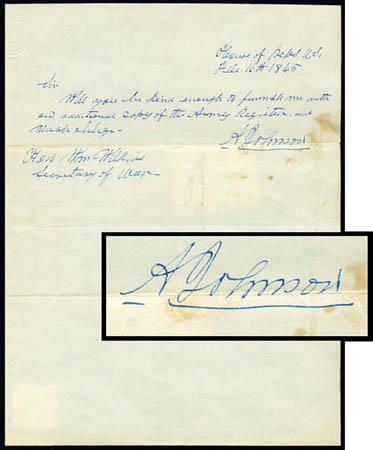 House of Reps U.S.
Feb 16th 1845
Sir
Will you be kind enough to furnish me with
an additional copy of the Army Register, and
much oblige—
A Johnson
Hon Wm Wilkins
Secretary of War—
A Johnson